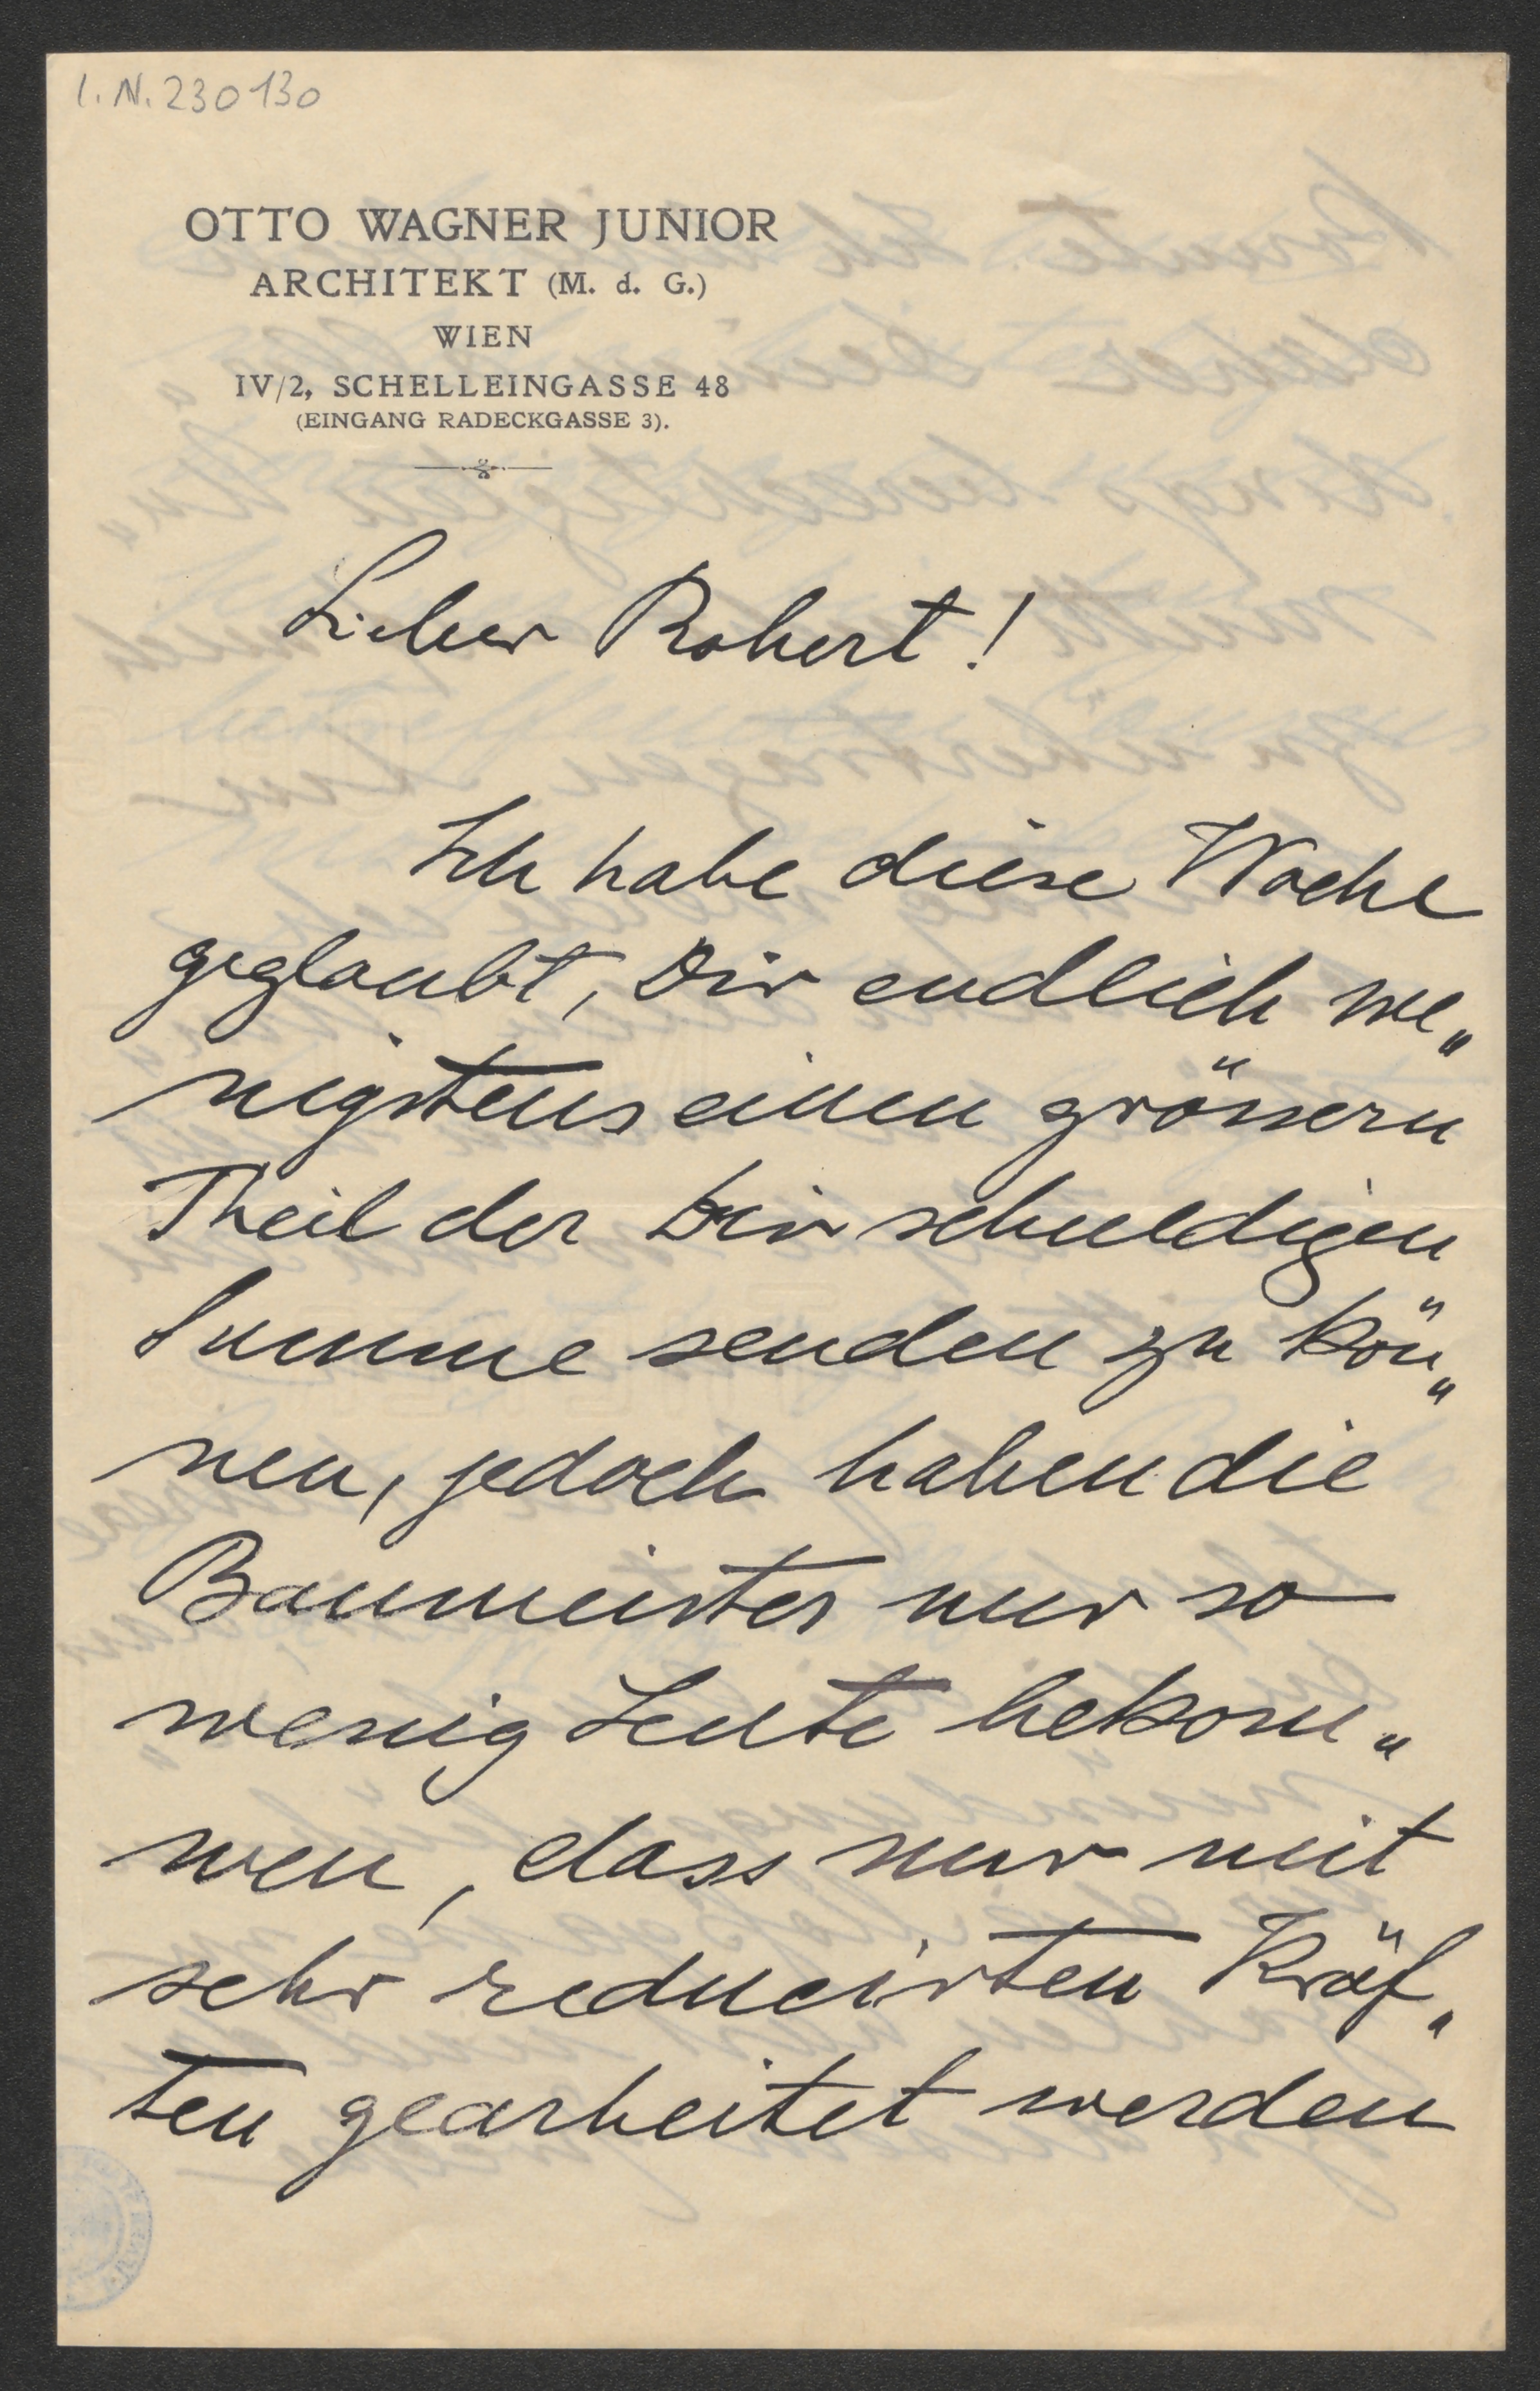 I. N. 230130
OTTO WAGNER JUNIOR
ARCHITEKT (M. d. G.)
WIEN
IV/2, SCHELLEINGASSE 48
(EINGANG RADECKGASSE 3).
Lieber Robert!
Ich habe diese Woche
geglaubt, Dir endlich we„
nigstens einen grössern
Theil der Dir schuldigen
Summe senden zu kön„
nen, jedoch haben die
Baumeister nur so
wenig Leute bekom„
men, dass nur mit
sehr reducirten Kräf„
ten gearbeitet werden